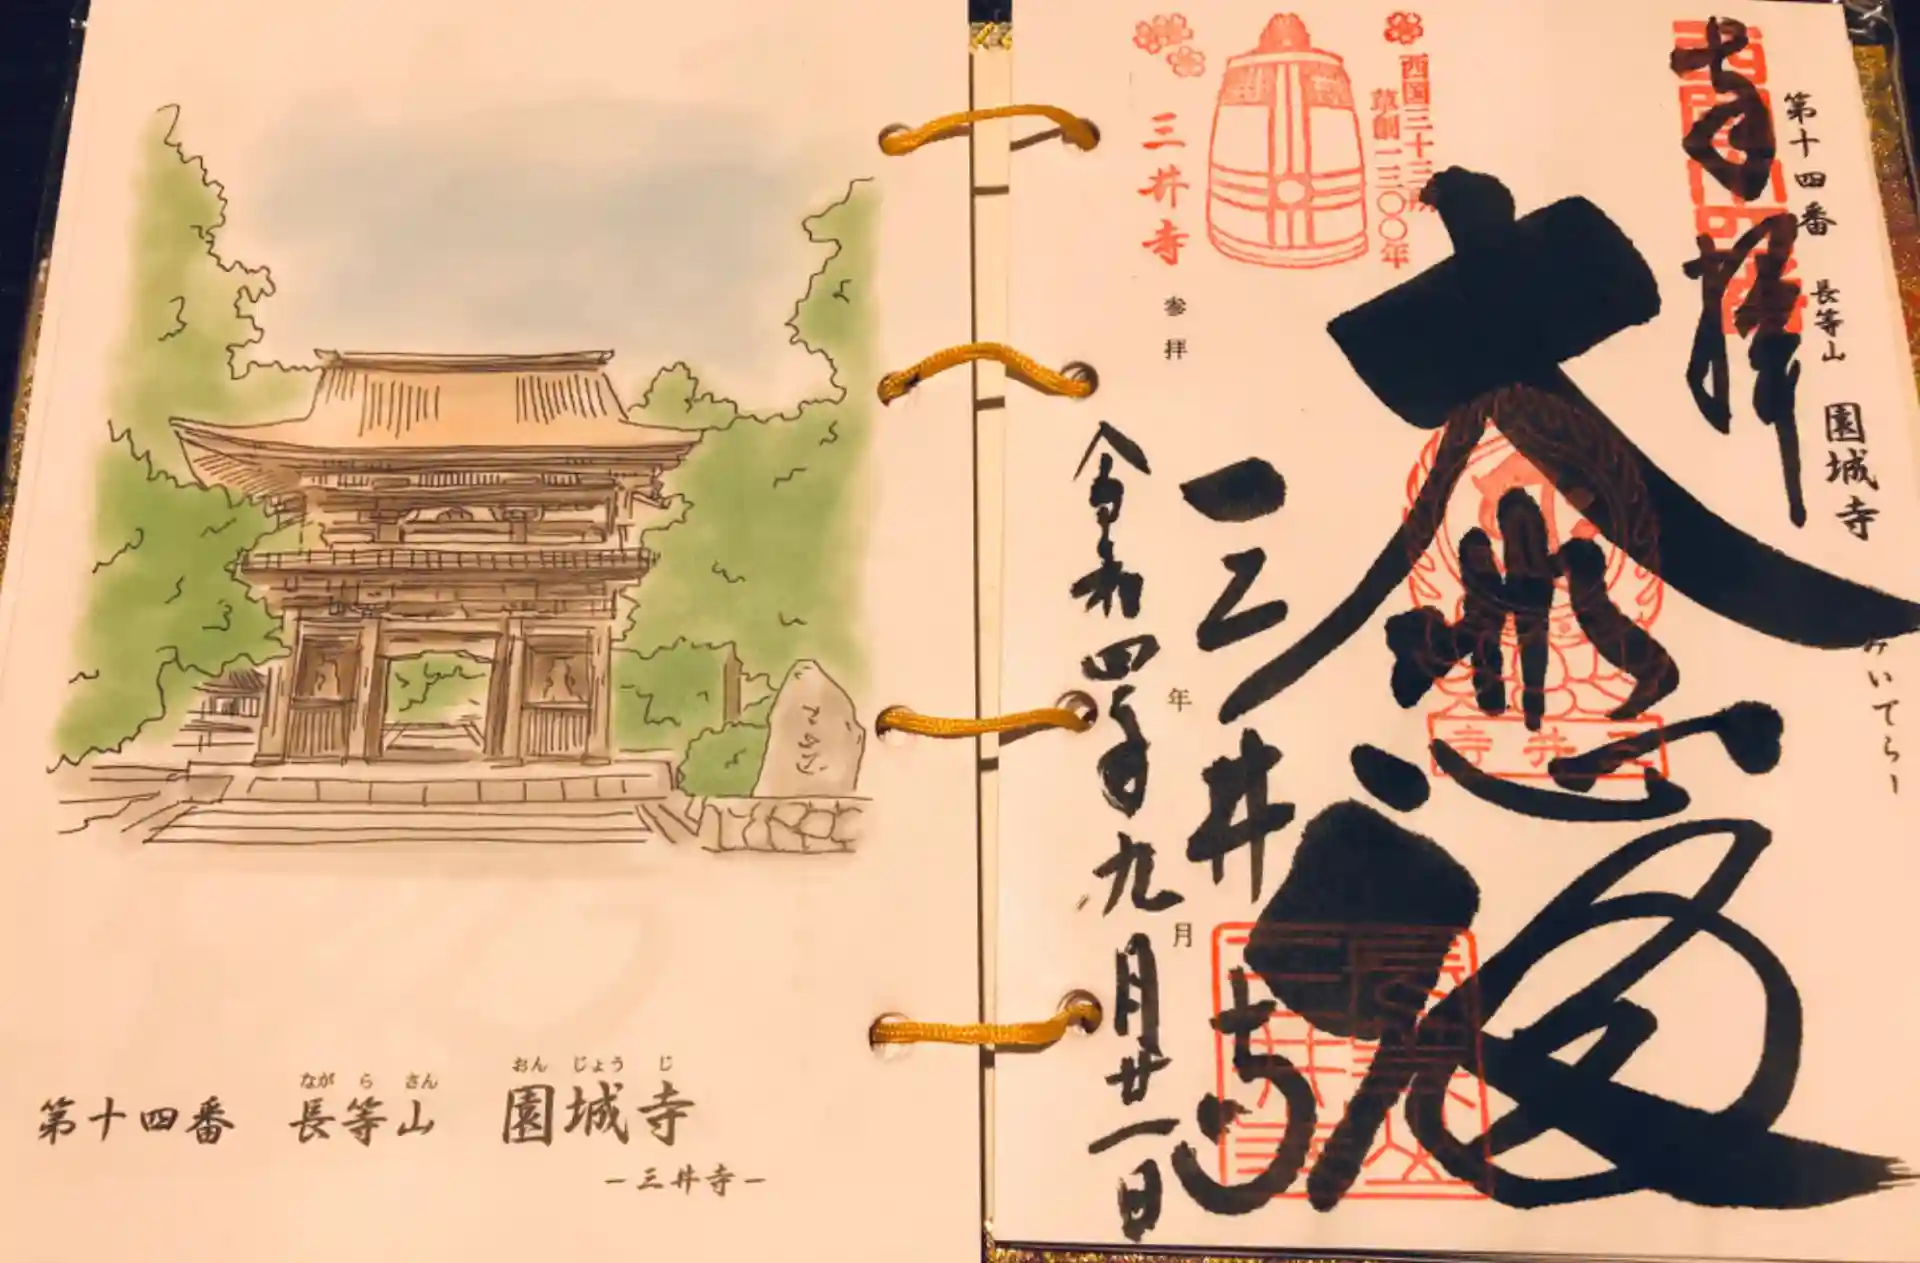 第十四番 長等山 園城寺
なが ら さん おん じょう じ
－三井寺－
奉拝
第十四番 長等山 園城寺
みいでらー
西国三十三所
草創一三〇〇年
三井寺
参拝
大悲殿
三井寺
三井寺
令和四年九月廿一日
年
月